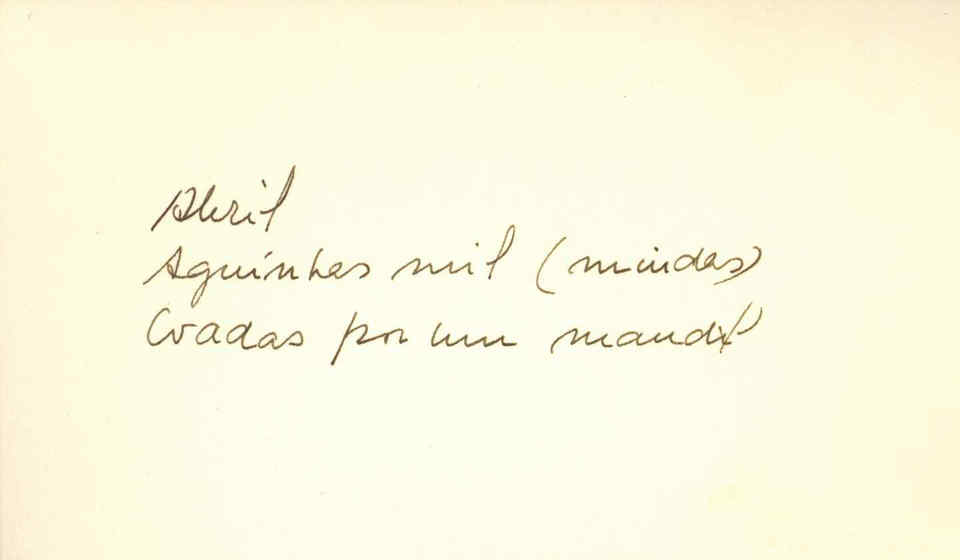 Abril
Aguinhas mil (miudas)
Coadas por um mandil